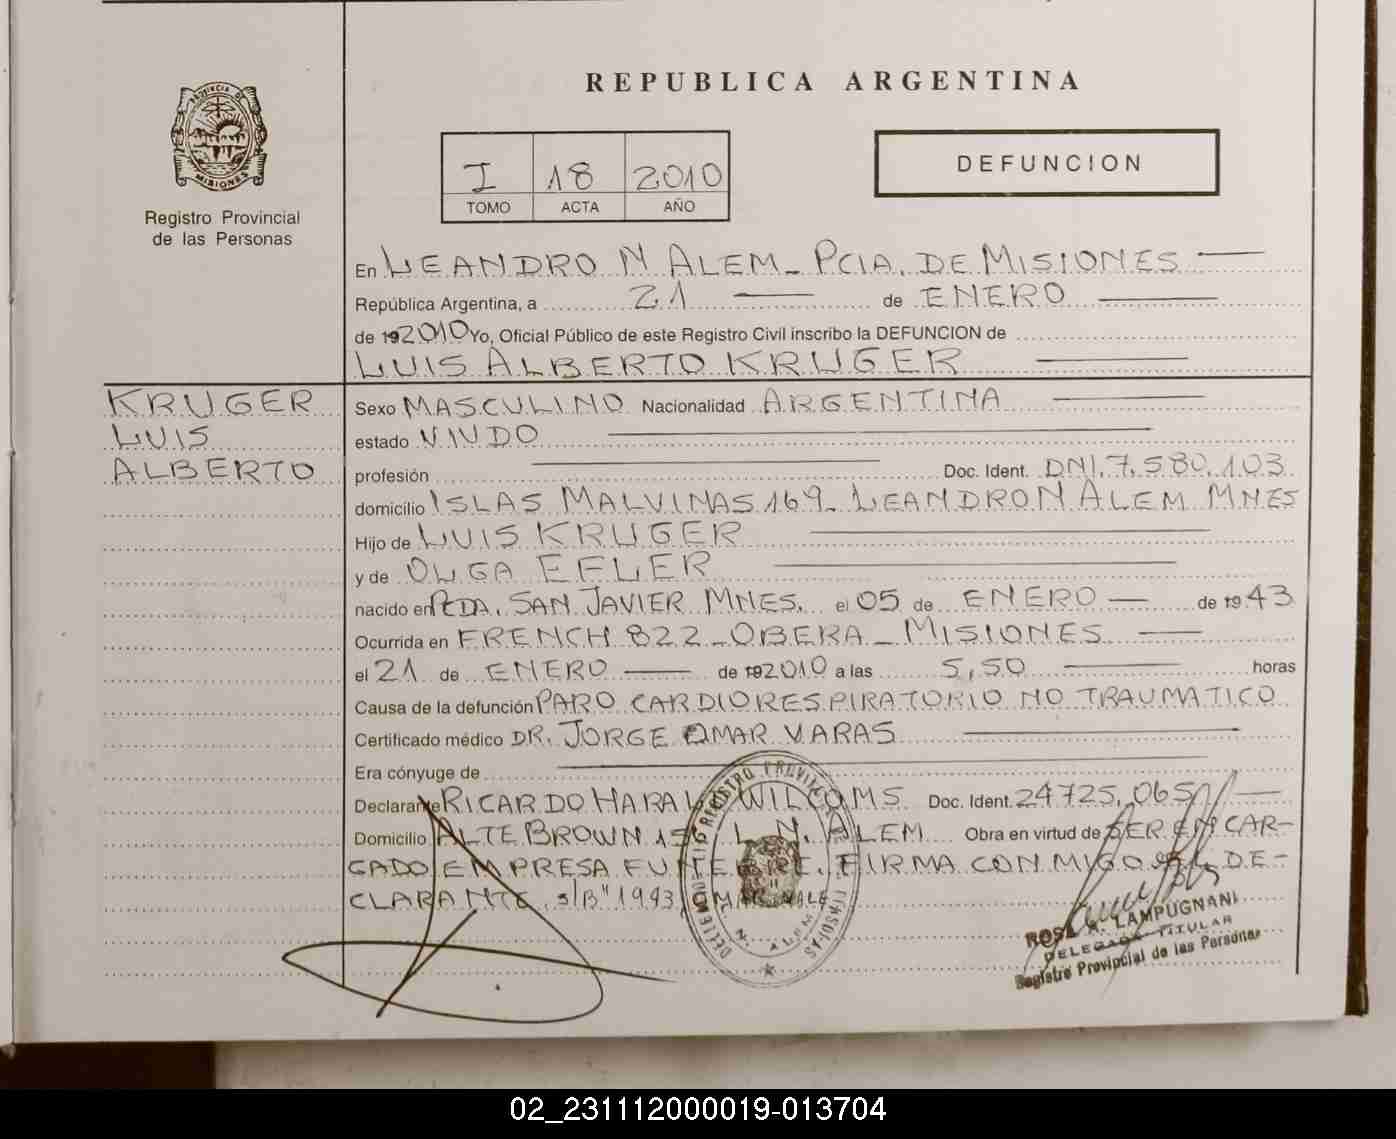 REPUBLICA ARGENTINA
PROVINCIA DE MISIONES
Registro Provincial
de las Personas
I 18 2010
TOMO ACTA AÑO
DEFUNCION
En LEANDRO N ALEM_ PCIA. DE MISIONES
República Argentina, a 21 de ENERO
de 192010 Yo, Oficial Público de este Registro Civil inscribo la DEFUNCION de
LUIS ALBERTO KRUGER
KRUGER
LUIS
ALBERTO
Sexo MASCULINO Nacionalidad ARGENTINA
estado VIUDO
profesión Doc. Ident. DNI. 7.580.103
domicilio ISLAS MALVINAS 169_ LEANDRO N ALEM MNES
Hijo de LUIS KRUGER
y de OLGA EFLER
nacido en PCDA. SAN JAVIER MNES. el 05 de ENERO de 1943
Ocurrida en FRENCH 822_OBERA_MISIONES
el 21 de ENERO de 192010 a las 5,50 horas
Causa de la defunción PARO CARDIORESPIRATORIO NO TRAUMATICO
Certificado médico DR. JORGE OMAR VARAS
Era cónyuge de
Declarante RICARDO WILCOMS Doc. Ident. 24725.065
Domicilio ALTE BROWN L. N. ALEM Obra en virtud de SER EN CAR-
GADO EMPRESA FUNEBRE. FIRMA CONMIGO EL DE-
CLARANTE. S/B" 1943, OMAR VALE
REGISTRO PROVINCIAL DE LAS PERSONAS
L. N. ALEM
ROSA A. LAMPUGNANI
DELEGADA TITULAR
Registro Provincial de las Personas
02_231112000019-013704